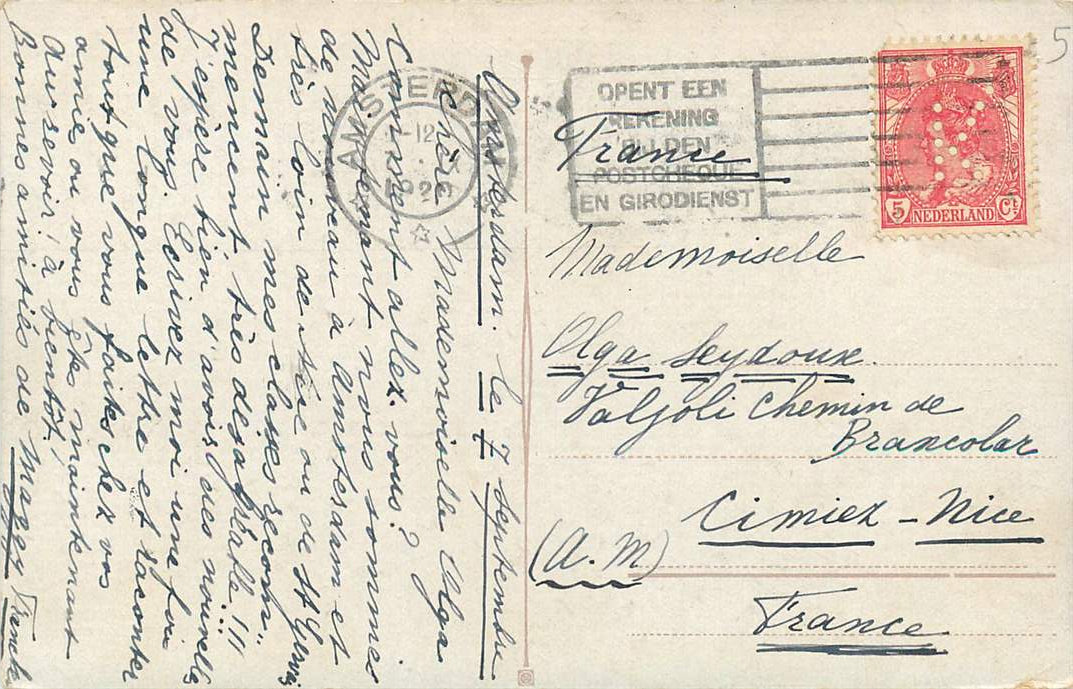 Amsterdam. le 7 Septembre
Chère Mademoiselle Olga
Comment allez-vous?
Maintenant nous sommes
de nouveau à Amsterdam et
très loin de Nice ou de St Gervais
Demain mes classes recom-
mencent très desagréable!!!
J'espère bien d'avoir des nouvelles
de vous. Ecrivez moi une fois
une longue lettre et raconter
tout que vous faites chez vos
amie ou vous êtes maintenant
Au revoir! à bientôt,
bonnes amitiés de Maggy
AMSTERDAM
12
1920
OPENT EEN
REKENING
BIJ DEN
POSTCHEQUE
EN GIRODIENST
5 NEDERLAND Ct
5
France
Mademoiselle
Olga Seydoux
Valjoli Chemin de
Brancolar
Cimiez - Nice
(A. M)
France